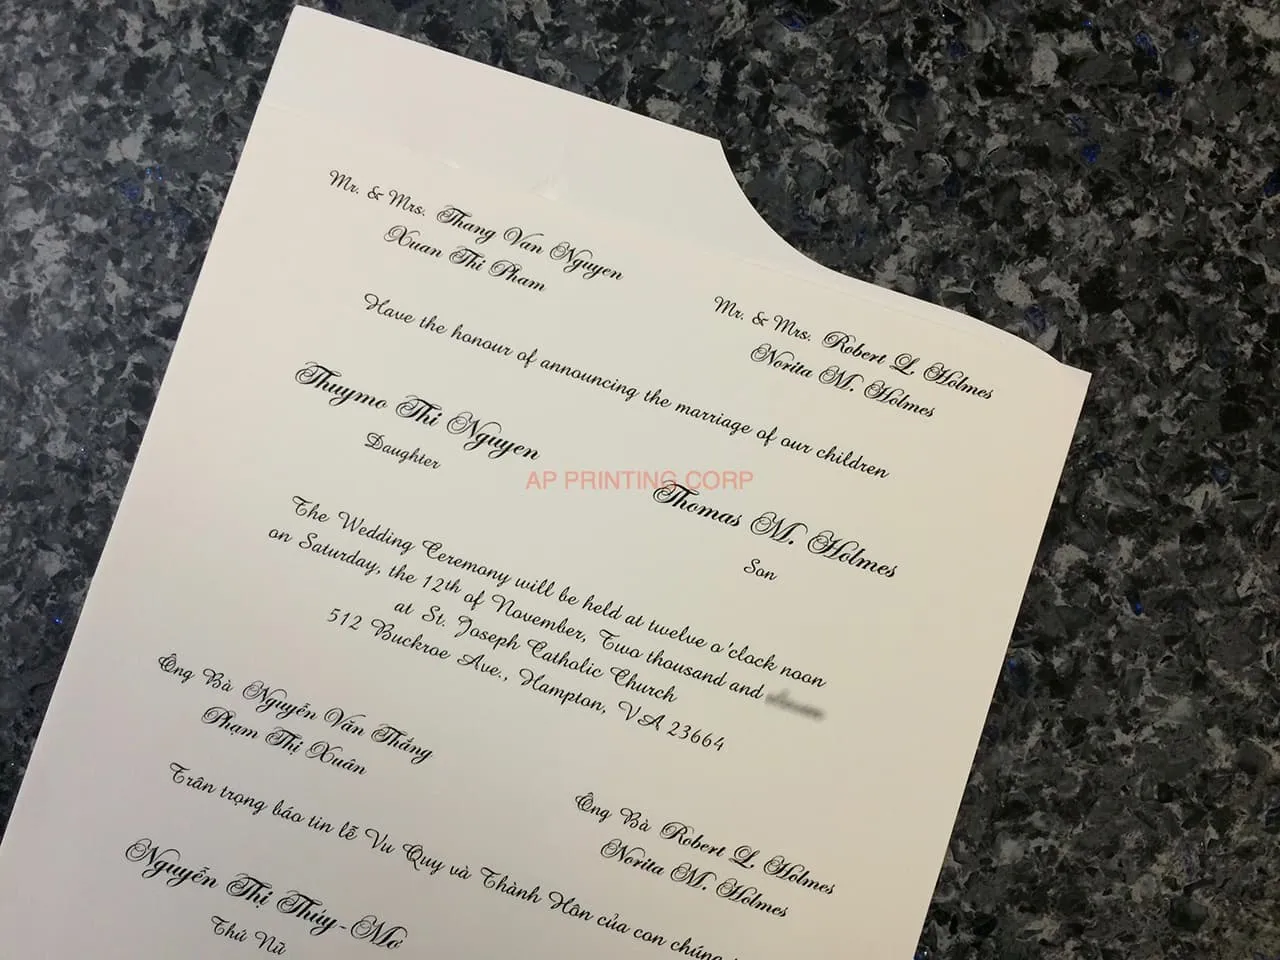 Mr. & Mrs. Thang Van Nguyen
Xuan Thi Pham
Mr. & Mrs. Robert L. Holmes
Norita M. Holmes
Have the honour of announcing the marriage of our children
Thuymo Thi Nguyen
Daughter
AP PRINTING CORP
Thomas M. Holmes
Son
The Wedding Ceremony will be held at twelve o'clock noon
on Saturday, the 12th of November, Two thousand and
at St. Joseph Catholic Church
512 Buckroe Ave., Hampton, VA 23664
Ông Bà Nguyễn Văn Thắng
Phạm Thị Xuân
Ông Bà Robert L. Holmes
Norita M. Holmes
Trân trọng báo tin lễ Vu Quy và Thành Hôn của con chúng
Nguyễn Thị Thúy-Mơ
Thứ Nữ